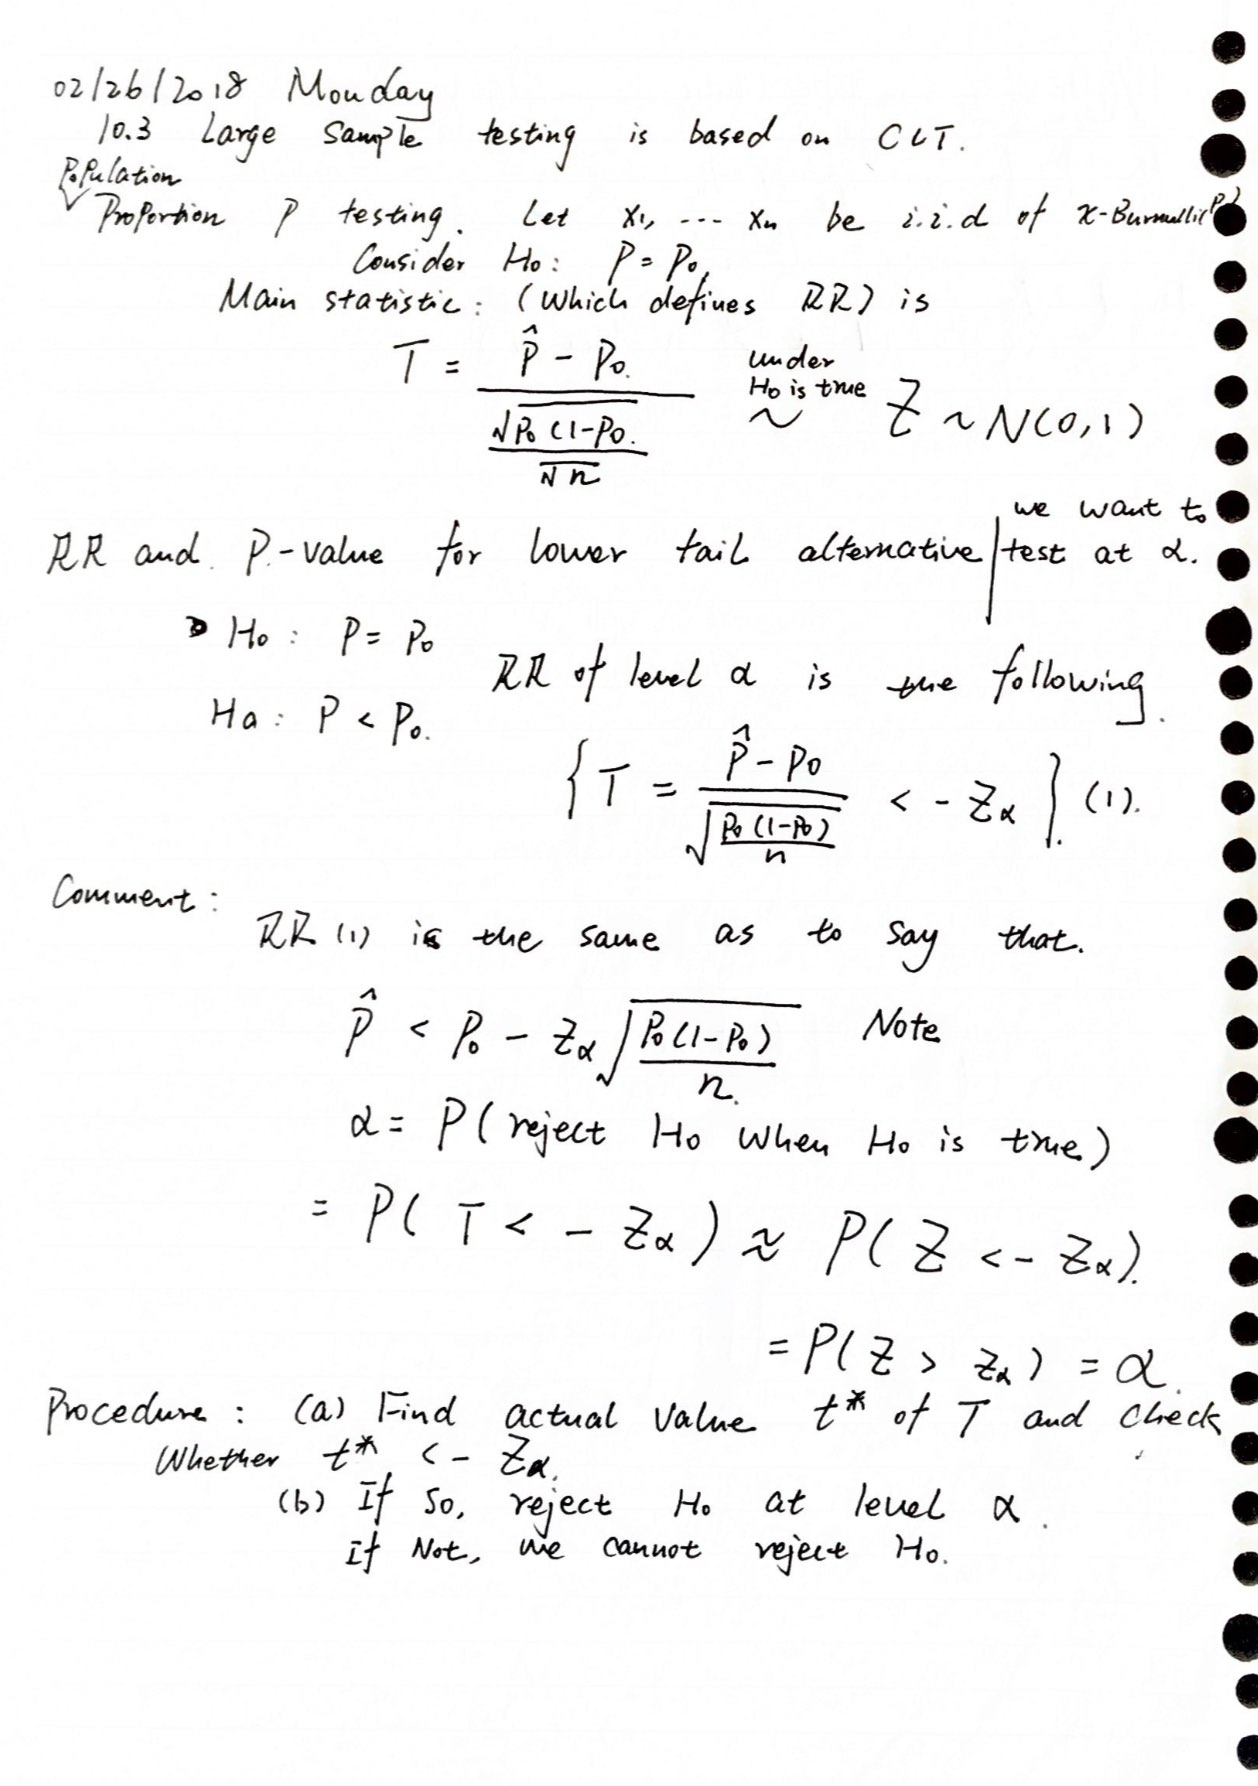 02/26/2018 Monday
10.3 Large Sample testing is based on CLT.
Population
Proportion P testing. Let X₁, --- Xn be i.i.d of x-Burnulli(P)
Consider H₀: P = P₀.
Main statistic: (which defines RR) is
T = (p̂ - P₀.) / (√P₀(1-P₀. / √n) under H₀ is true ~ Z ~ N(0,1)
we want to
RR and P-value for lower tail alternative | test at α.
H₀: P = P₀
RR of level α is the following.
Ha: P < P₀.
{ T = (p̂ - P₀) / √(P₀(1-P₀)/n) < - Zα }. (1).
Comment:
RR (1) is the same as to say that.
p̂ < P₀ - Zα √(P₀(1-P₀)/n.) Note
α = P( reject H₀ when H₀ is true)
= P( T < - Zα ) ≈ P( Z < - Zα ).
= P( Z > Zα ) = α.
Procedure: (a) Find actual value t* of T and check
Whether t* < - Zα.
(b) If so, reject H₀ at level α.
If Not, we cannot reject H₀.